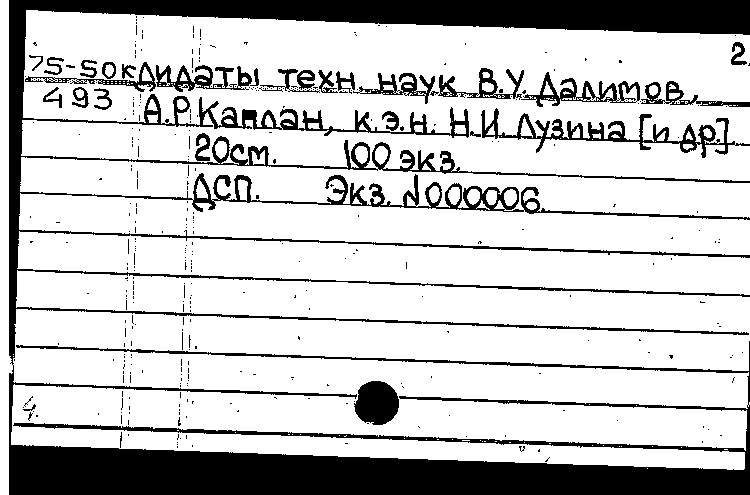 2.
75-5 октидаты техн. наук В.У. Далимов,
493 А.Р. Каплан, к.э.н. Н.И. Лузина [и др]
20см. 100 экз.
ДСП. Экз. N000006.
4.